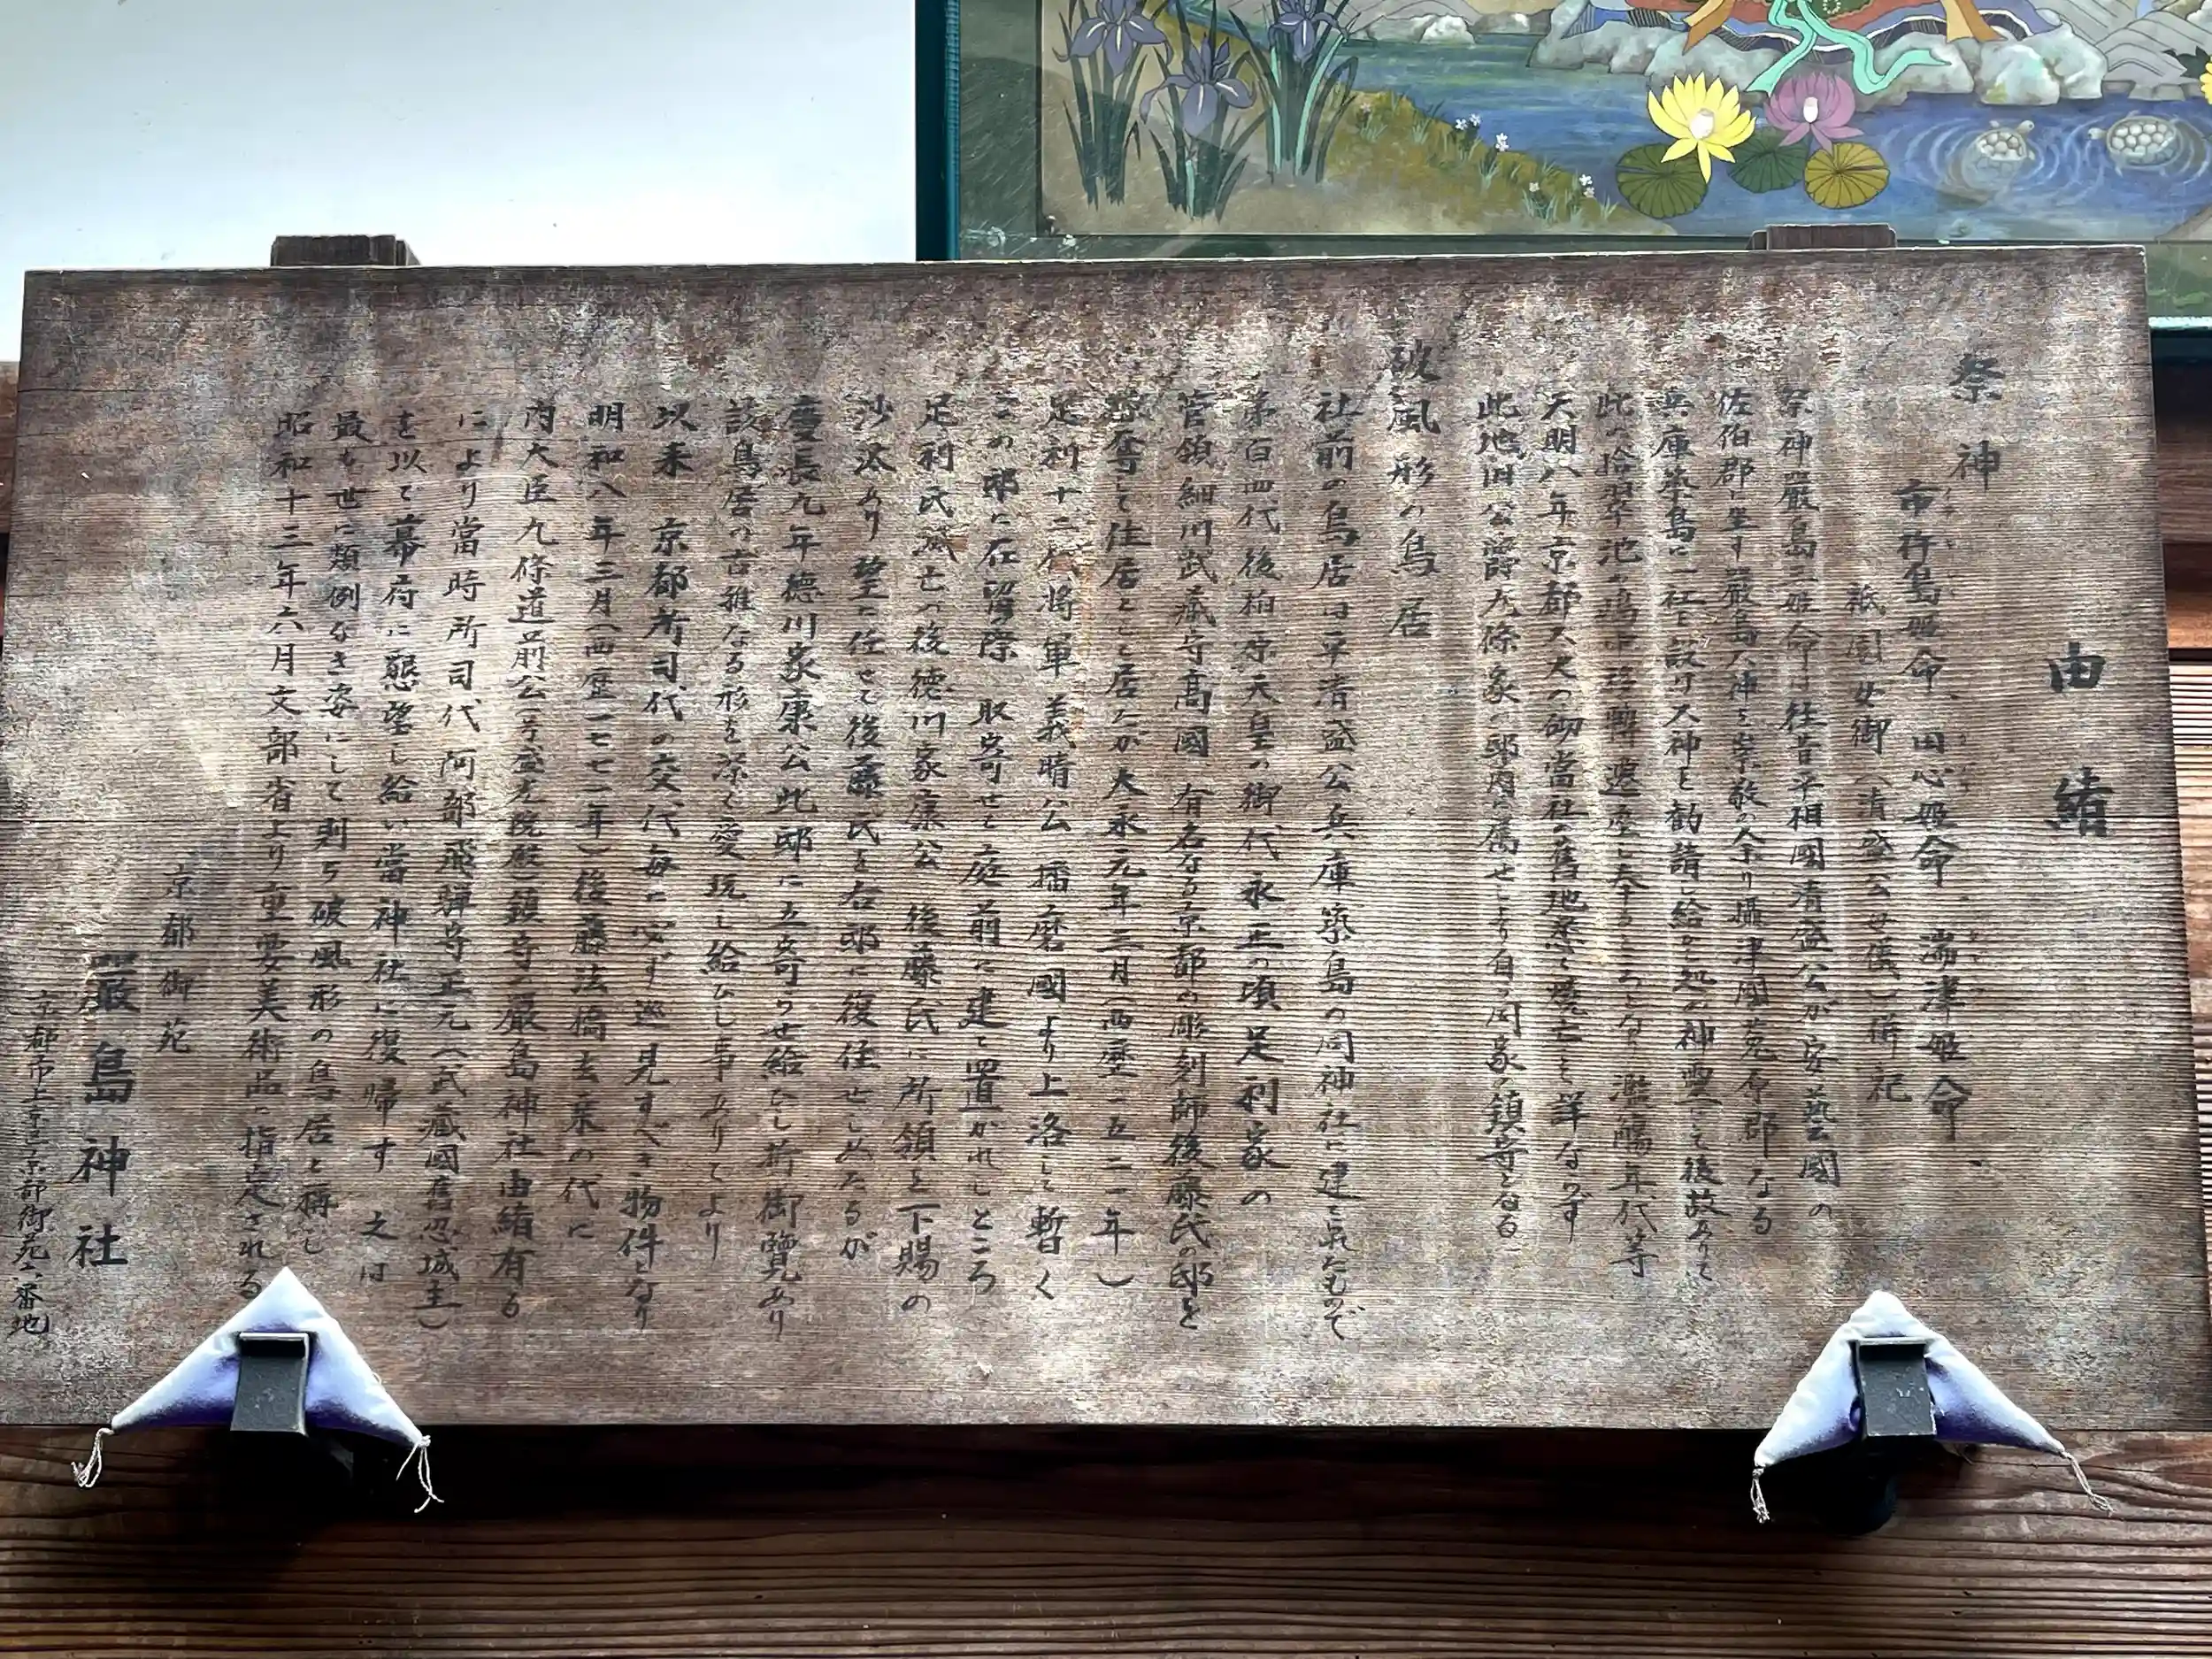 由緒
祭神
市杵島姫命 田心姫命 湍津姫命
祇園女御(清盛公母儀)併祀
祭神嚴島三姫命は往昔平相國清盛公が安藝國の
佐伯郡に坐す嚴島大神を崇敬の余り攝津國菟原郡なる
兵庫築島に一社を設け大神を勧請し給ひし処の神霊にて後故ありて
此の拾翠池の嶋中に移轉遷座し奉するところなり 濫觴年代等
天明八年京都大火の砌當社の舊地悉く焼亡して詳ならず
此地旧公爵九條家の邸内に属せしより自ら同家の鎮守となる
破風形の鳥居
社前の鳥居は平清盛公兵庫築島の同神社に建てられたもので
第百四代後柏原天皇の御代 永正の頃足利家の
管領細川武蔵守高國 有名なる京都の彫刻師後藤氏の邸を
奪て住居として居たが大永元年三月(西歴一五二一年)
足利十二代将軍義晴公 播磨國より上洛して暫く
この邸に在留の際 取寄せて庭前に建て置かれしところ
足利氏滅亡の後徳川家康公 後藤氏に所領を下賜の
沙汰あり 望に任せて後藤氏を右邸に復住せしめたるが
慶長九年徳川家康公此邸に立寄らせ給ひし折御覽あり
該鳥居の古雅なる形を深く愛玩し給ひし事ありてより
以来 京都所司代の交代毎に必ず巡見すべき物件となり
明和八年三月(西歴一七七一年)後藤法橋玄乗の代に
内大臣九條道前公(号盛光院殿)鎮守の嚴島神社由緒有る
により當時所司代 阿部飛騨守正元(武蔵國舊忍城主)
を以て幕府に懇望し給い當神社に復帰す 之は
最も世に類例なき姿にして則ち破風形の鳥居と稱し
昭和十三年六月文部省より重要美術品に指定される
京都御苑
嚴島神社
京都市上京区京都御苑六番地